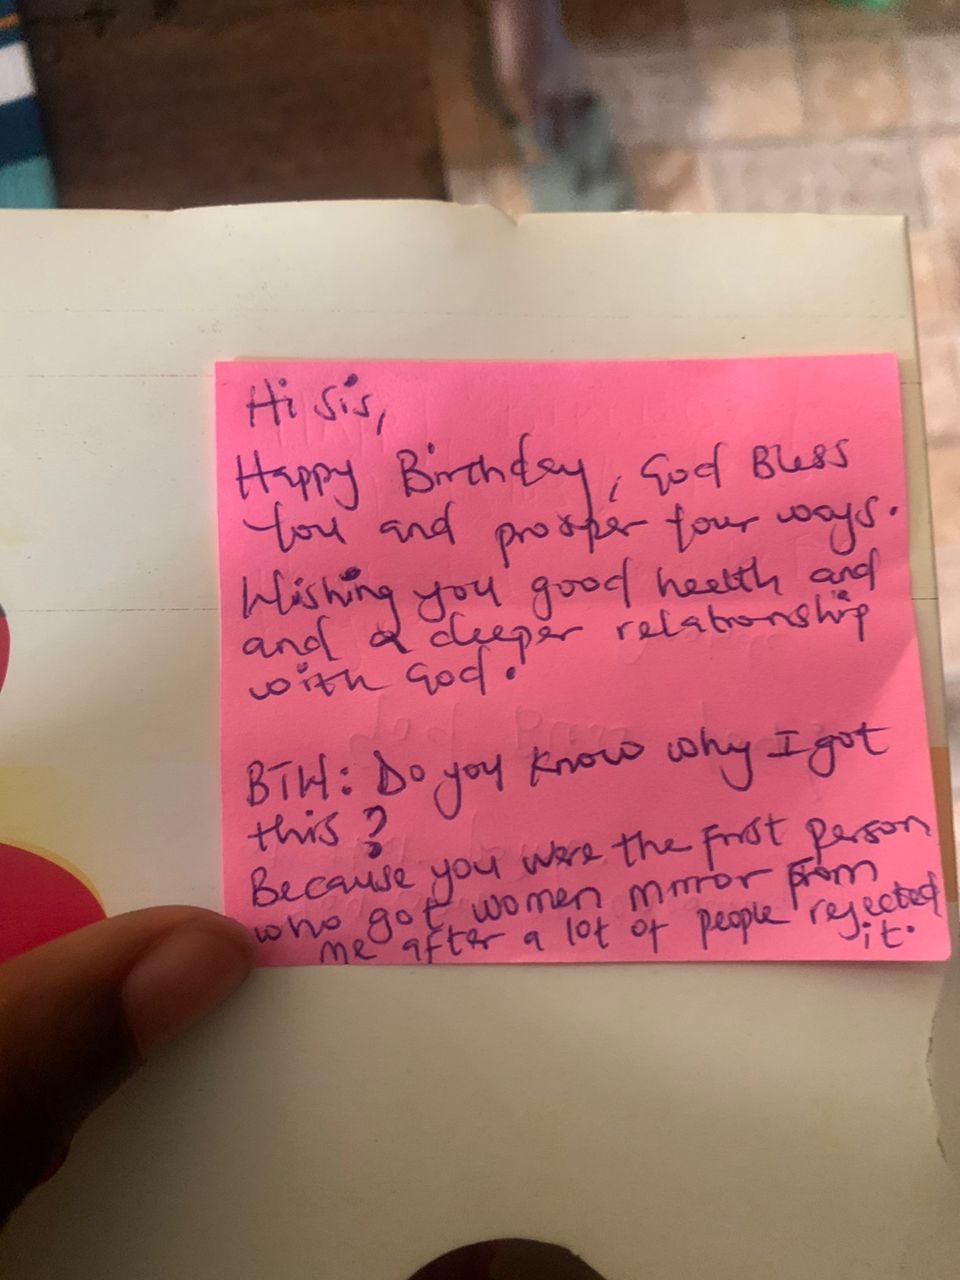 Hi sis,
Happy Birthday, God Bless
You and prosper your ways.
Wishing you good health and
and a deeper relationship
with God.
BTW: Do you know why I got
this?
Because you were the first person
who got women mirror from
me after a lot of people rejected
it.